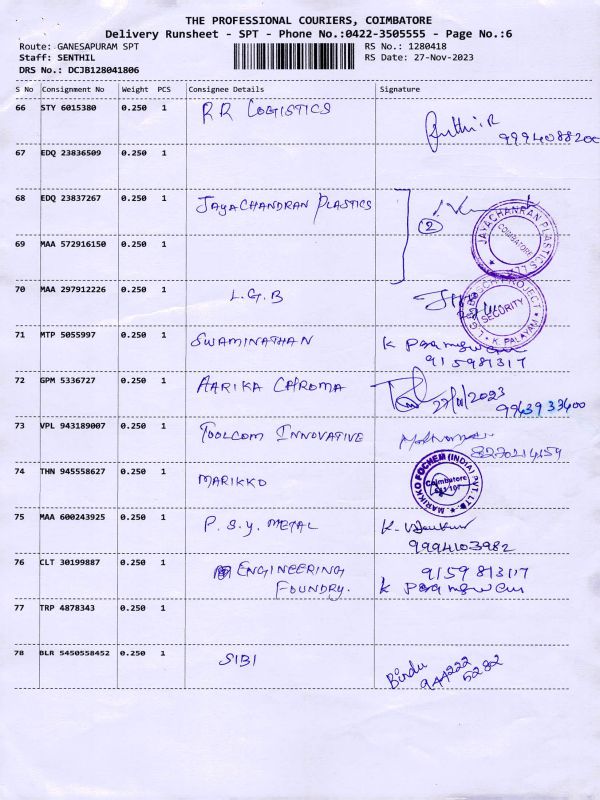 THE PROFESSIONAL COURIERS, COIMBATORE
Delivery Runsheet - SPT - Phone No.:0422-3505555 - Page No.:6
Route: GANESAPURAM SPT RS No.: 1280418
Staff: SENTHIL RS Date: 27-Nov-2023
DRS No.: DCJB128041806
S No Consignment No Weight PCS Consignee Details Signature
66 STY 6015380 0.250 1 RR LOGISTICS
9994088200
67 EDQ 23836509 0.250 1
68 EDQ 23837267 0.250 1 JAYACHANDRAN PLASTICS
2
JAYACHANRAN PLASTICS
COIMBATORE
69 MAA 572916150 0.250 1
70 MAA 297912226 0.250 1 L.G.B
SECURITY
K. PALAYAM
71 MTP 5055997 0.250 1 SWAMINATHAN K
9159813117
72 GPM 5336727 0.250 1 AARIKA CHROMA
27/11/2023
9943933400
73 VPL 943189007 0.250 1 TOOLCOM INNOVATIVE
74 THN 945558627 0.250 1 MARIKKO
MARIKKO FOCHEM (INDIA) PVT. LTD.
Coimbatore
641 107
75 MAA 600243925 0.250 1 P.S.Y. METAL K.
9994103982
76 CLT 30199887 0.250 1 ENGINEERING 9159813117
FOUNDRY. K
77 TRP 4878343 0.250 1
78 BLR 5450558452 0.250 1 SIBI Bindu
944222
5282